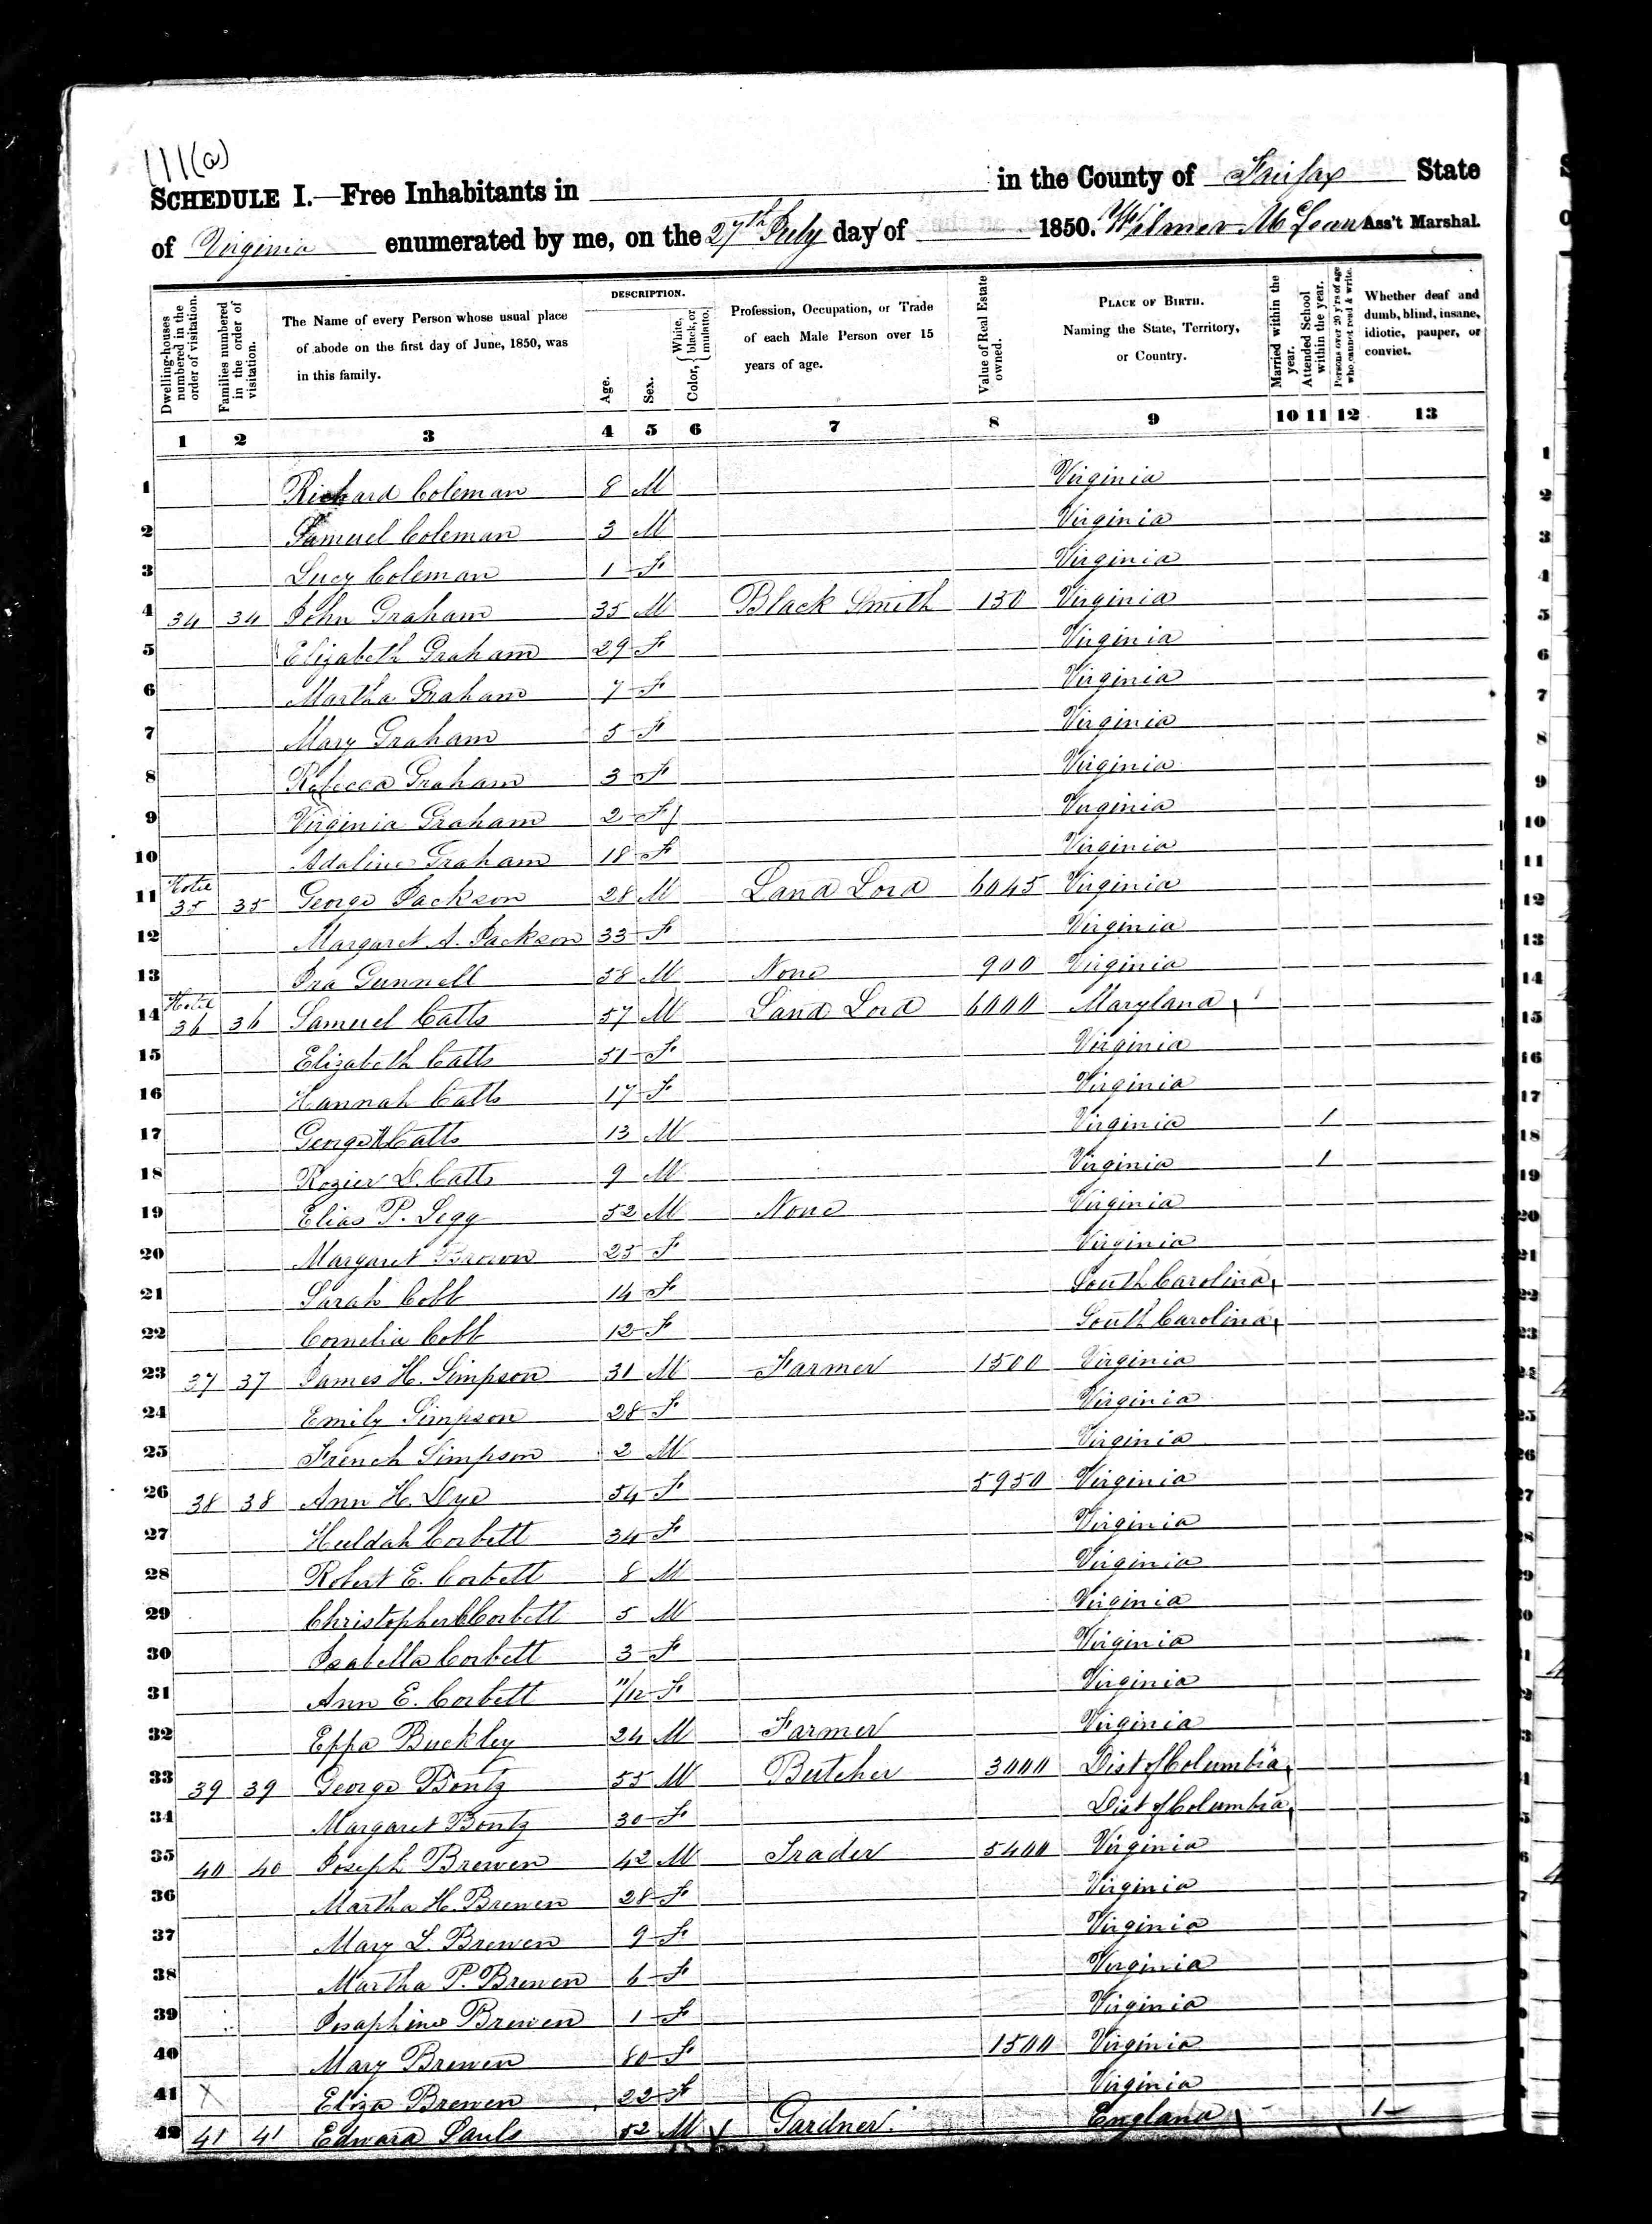 111(a)
SCHEDULE I.—Free Inhabitants in in the County of Fairfax State
of Virginia enumerated by me, on the 27th July day of 1850. Wilmer McLean Ass't Marshal.
Dwelling-houses numbered in the order of visitation.
Families numbered in the order of visitation.
The Name of every Person whose usual place of abode on the first day of June, 1850, was in this family.
DESCRIPTION.
Age.
Sex.
Color, { White, black, or mulatto.
Profession, Occupation, or Trade of each Male Person over 15 years of age.
Value of Real Estate owned.
PLACE OF BIRTH. Naming the State, Territory, or Country.
Married within the year.
Attended School within the year.
Persons over 20 y'rs of age who cannot read & write.
Whether deaf and dumb, blind, insane, idiotic, pauper, or convict.
1 2 3 4 5 6 7 8 9 10 11 12 13
1 Richard Coleman 8 M Virginia
2 Samuel Coleman 3 M Virginia
3 Lucy Coleman 1 F Virginia
4 34 34 John Graham 35 M Black Smith 150 Virginia
5 Elizabeth Graham 29 F Virginia
6 Martha Graham 7 F Virginia
7 Mary Graham 5 F Virginia
8 Rebecca Graham 3 F Virginia
9 Virginia Graham 2 F Virginia
10 Adaline Graham 18 F Virginia
11 Hotel 35 35 George Jackson 28 M Land Lord 6045 Virginia
12 Margaret A. Jackson 33 F Virginia
13 Ira Gunnell 58 M None 900 Virginia
14 Hotel 36 36 Samuel Catts 57 M Land Lord 6000 Maryland
15 Elizabeth Catts 51 F Virginia
16 Hannah Catts 17 F Virginia
17 George W Catts 13 M Virginia 1
18 Rozier D. Catts 9 M Virginia 1
19 Elias P. Legg 52 M None Virginia
20 Margaret Brown 25 F Virginia
21 Sarah Cobb 14 F South Carolina
22 Cornelia Cobb 12 F South Carolina
23 37 37 James H. Simpson 31 M Farmer 1500 Virginia
24 Emily Simpson 28 F Virginia
25 French Simpson 2 M Virginia
26 38 38 Ann H. Dye 54 F 5950 Virginia
27 Huldah Corbett 34 F Virginia
28 Robert E. Corbett 8 M Virginia
29 Christopher C Corbett 5 M Virginia
30 Isabella Corbett 3 F Virginia
31 Ann E. Corbett 11/12 F Virginia
32 Eppa Buckley 24 M Farmer Virginia
33 39 39 George Bontz 55 M Butcher 3000 Dist of Columbia
34 Margaret Bontz 30 F Dist of Columbia
35 40 40 Joseph Brewen 42 M Trader 5400 Virginia
36 Martha H. Brewen 28 F Virginia
37 Mary L. Brewen 9 F Virginia
38 Martha P. Brewen 6 F Virginia
39 Josaphine Brewen 1 F Virginia
40 Mary Brewen 80 F 1500 Virginia
41 X Eliza Brewen 22 F Virginia
42 41 41 Edward Sauls 52 M Gardner. England 1